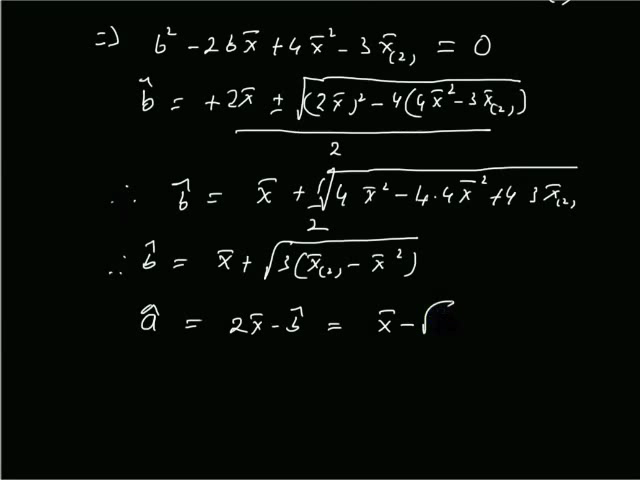 ⇒ b² - 2bx̄ + 4x̄² - 3x̄₍₂₎ = 0
b̂ = +2x̄ ± √((2x̄)² - 4(4x̄² - 3x̄₍₂₎)) / 2
∴ b̂ = x̄ + 1/2 √(4x̄² - 4·4x̄² + 4 3x̄₍₂₎
∴ b̂ = x̄ + √(3(x̄₍₂₎ - x̄²))
â = 2x̄ - b̂ = x̄ - √